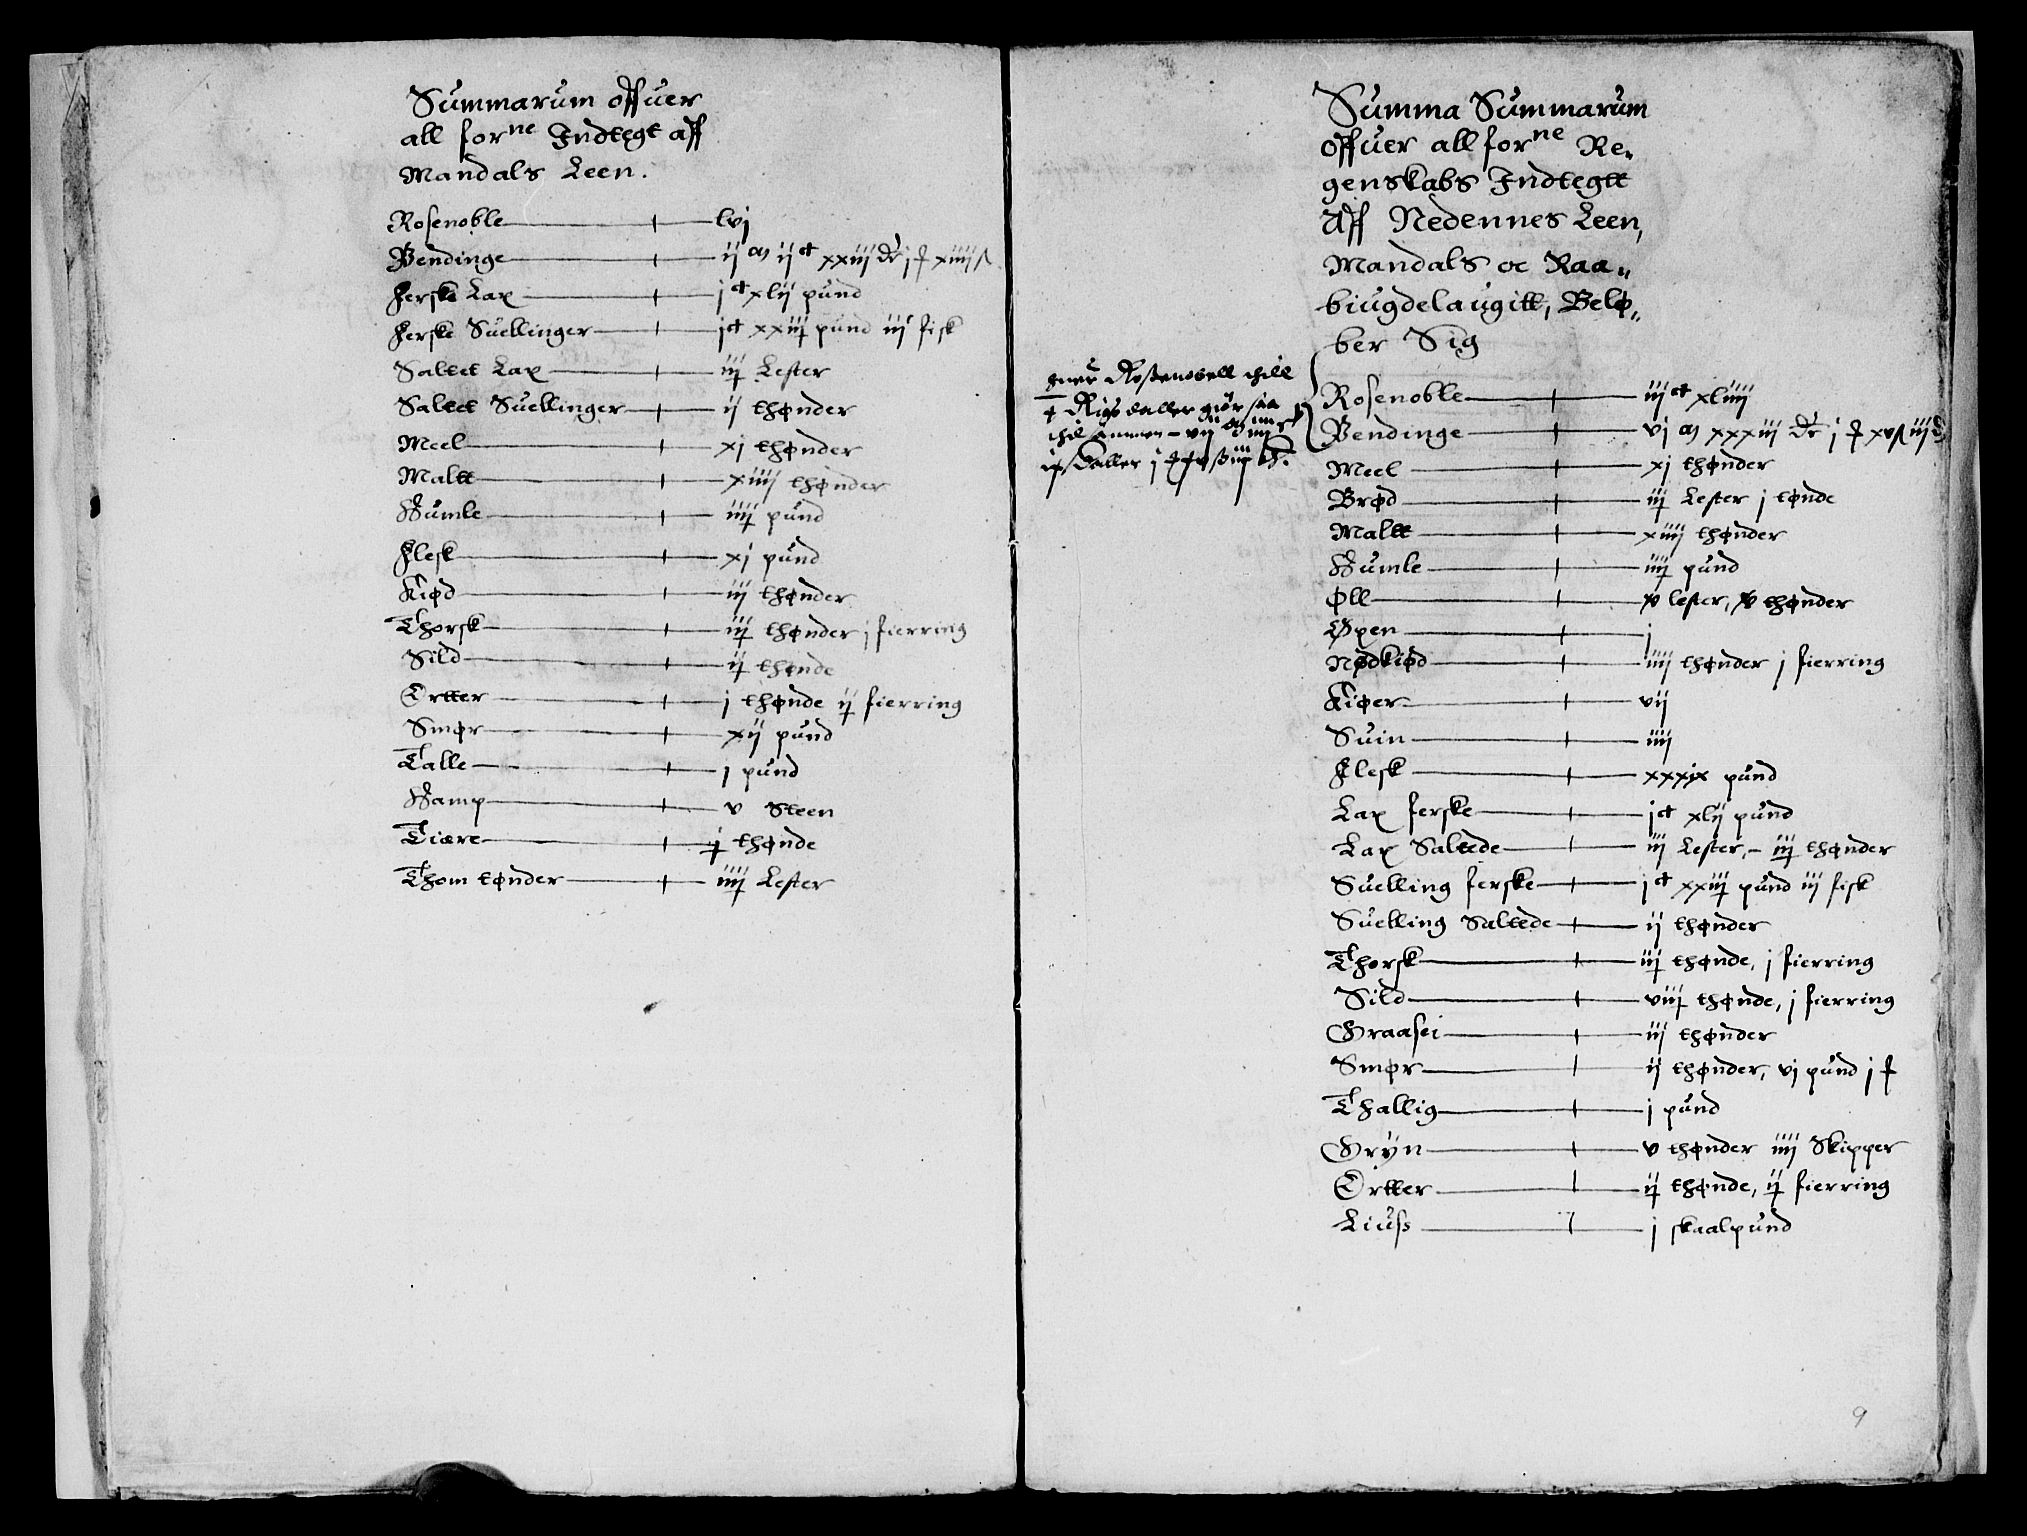 Summarum offuer
all forne Indtegt aff
Mandals Leen.
Rosenoble lvj
Pendinge ij m ij ct xxiiij dr j ƒ xiiij ß
Ferske Lax j ct xlij pund
Ferske Suellinger j ct xxiij pund iij fisk
Saltet Lax iij Lester
Saltet Suellinger ij thønder
Meel xj thønder
Maltt xiiij thønder
Humle iiij pund
Flesk xj pund
Kiød iij thønder
Thorsk iij thønder j fierring
Sild ij thønde
Ertter j thønde ij fierring
Smør xij pund
Talle j pund
Hamp v Steen
Tiære j thønde
Thom tønder iiij Lester
Summa Summarum
offuer all forne Re-
genskabs Indtegtt
Aff Nedennes Leen,
Mandals oc Raa-
biugdelaugitt, Belø-
ber Sig
Rosenoble iij ct xliiij
Pendinge vj m xxxiij dr j ƒ xv ß iij
Meel xj thønder
Brød iij Lester j tønde
Maltt xiiij thønder
Humle iiij pund
Øll xv lester, xv thønder
Øxen j
Nødkiød iiij thønder j fierring
Kiøer vij
Suin iiij
Flesk xxxix pund
Lax ferske j ct xlij pund
Lax Saltede iij Lester, - iij thønder
Suelling ferske j ct xxiij pund iij fisk
Suelling Saltede ij thønder
Thorsk iij thønde, j fierring
Sild viij thønde, j fierring
Graasei iij thønder
Smør ij thønder, vj pund j ƒ
Thallig j pund
Gryn v thønder iiij Skipper
Ertter ij thønde, ij fierring
Liuss j skaalpund
9